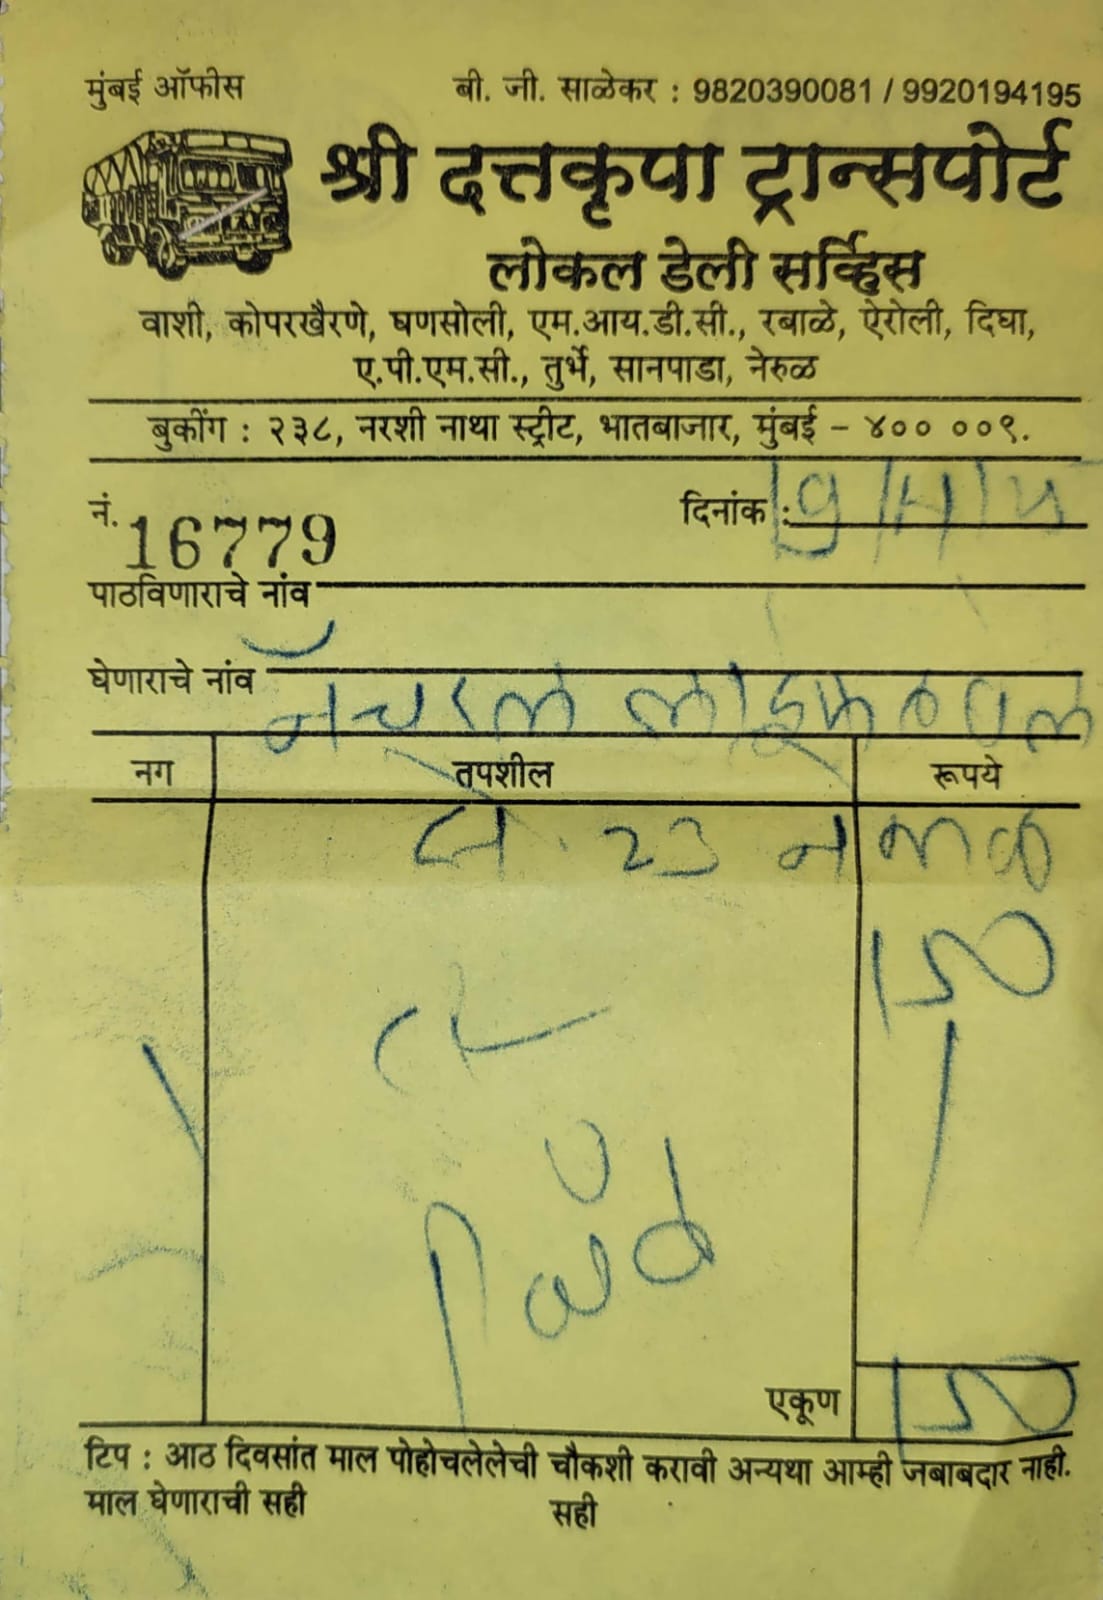 मुंबई ऑफीस
बी. जी. साळेकर : 9820390081 / 9920194195
श्री दत्तकृपा ट्रान्सपोर्ट
लोकल डेली सर्व्हिस
वाशी, कोपरखैरणे, घणसोली, एम.आय.डी.सी., रबाळे, ऐरोली, दिघा,
ए.पी.एम.सी., तुर्भे, सानपाडा, नेरुळ
बुकींग : २३८, नरशी नाथा स्ट्रीट, भातबाजार, मुंबई – ४०० ००९.
नं. 16779
दिनांक :
पाठविणाराचे नांव
घेणाराचे नांव नॅचरल
नग तपशील रूपये
से. 23
150
Paid
एकूण 150
टिप : आठ दिवसांत माल पोहोचलेलेची चौकशी करावी अन्यथा आम्ही जबाबदार नाही.
माल घेणाराची सही सही